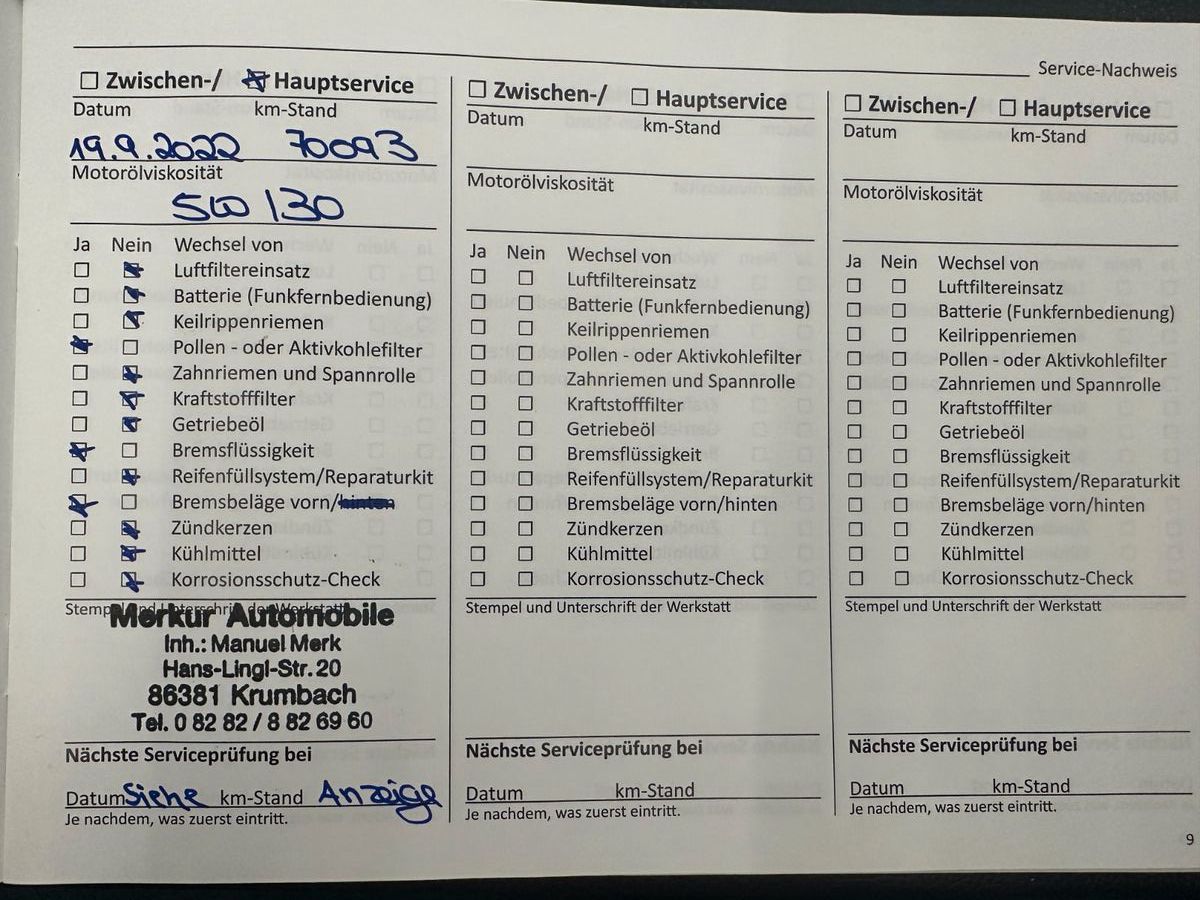 Service-Nachweis
☐ Zwischen-/ ☒ Hauptservice
Datum km-Stand
19.9.2022 70093
Motorölviskosität
5W/30
Ja Nein Wechsel von
☐ ☒ Luftfiltereinsatz
☐ ☒ Batterie (Funkfernbedienung)
☐ ☒ Keilrippenriemen
☒ ☐ Pollen - oder Aktivkohlefilter
☐ ☒ Zahnriemen und Spannrolle
☐ ☒ Kraftstofffilter
☐ ☒ Getriebeöl
☒ ☐ Bremsflüssigkeit
☐ ☒ Reifenfüllsystem/Reparaturkit
☒ ☐ Bremsbeläge vorn/hinten
☐ ☒ Zündkerzen
☐ ☒ Kühlmittel
☐ ☒ Korrosionsschutz-Check
Stempel und Unterschrift der Werkstatt
Merkur Automobile
Inh.: Manuel Merk
Hans-Lingl-Str. 20
86381 Krumbach
Tel. 0 82 82 / 8 82 69 60
Nächste Serviceprüfung bei
Datum Siehe km-Stand Anzeige
Je nachdem, was zuerst eintritt.
☐ Zwischen-/ ☐ Hauptservice
Datum km-Stand
Motorölviskosität
Ja Nein Wechsel von
☐ ☐ Luftfiltereinsatz
☐ ☐ Batterie (Funkfernbedienung)
☐ ☐ Keilrippenriemen
☐ ☐ Pollen - oder Aktivkohlefilter
☐ ☐ Zahnriemen und Spannrolle
☐ ☐ Kraftstofffilter
☐ ☐ Getriebeöl
☐ ☐ Bremsflüssigkeit
☐ ☐ Reifenfüllsystem/Reparaturkit
☐ ☐ Bremsbeläge vorn/hinten
☐ ☐ Zündkerzen
☐ ☐ Kühlmittel
☐ ☐ Korrosionsschutz-Check
Stempel und Unterschrift der Werkstatt
Nächste Serviceprüfung bei
Datum km-Stand
Je nachdem, was zuerst eintritt.
☐ Zwischen-/ ☐ Hauptservice
Datum km-Stand
Motorölviskosität
Ja Nein Wechsel von
☐ ☐ Luftfiltereinsatz
☐ ☐ Batterie (Funkfernbedienung)
☐ ☐ Keilrippenriemen
☐ ☐ Pollen - oder Aktivkohlefilter
☐ ☐ Zahnriemen und Spannrolle
☐ ☐ Kraftstofffilter
☐ ☐ Getriebeöl
☐ ☐ Bremsflüssigkeit
☐ ☐ Reifenfüllsystem/Reparaturkit
☐ ☐ Bremsbeläge vorn/hinten
☐ ☐ Zündkerzen
☐ ☐ Kühlmittel
☐ ☐ Korrosionsschutz-Check
Stempel und Unterschrift der Werkstatt
Nächste Serviceprüfung bei
Datum km-Stand
Je nachdem, was zuerst eintritt.
9